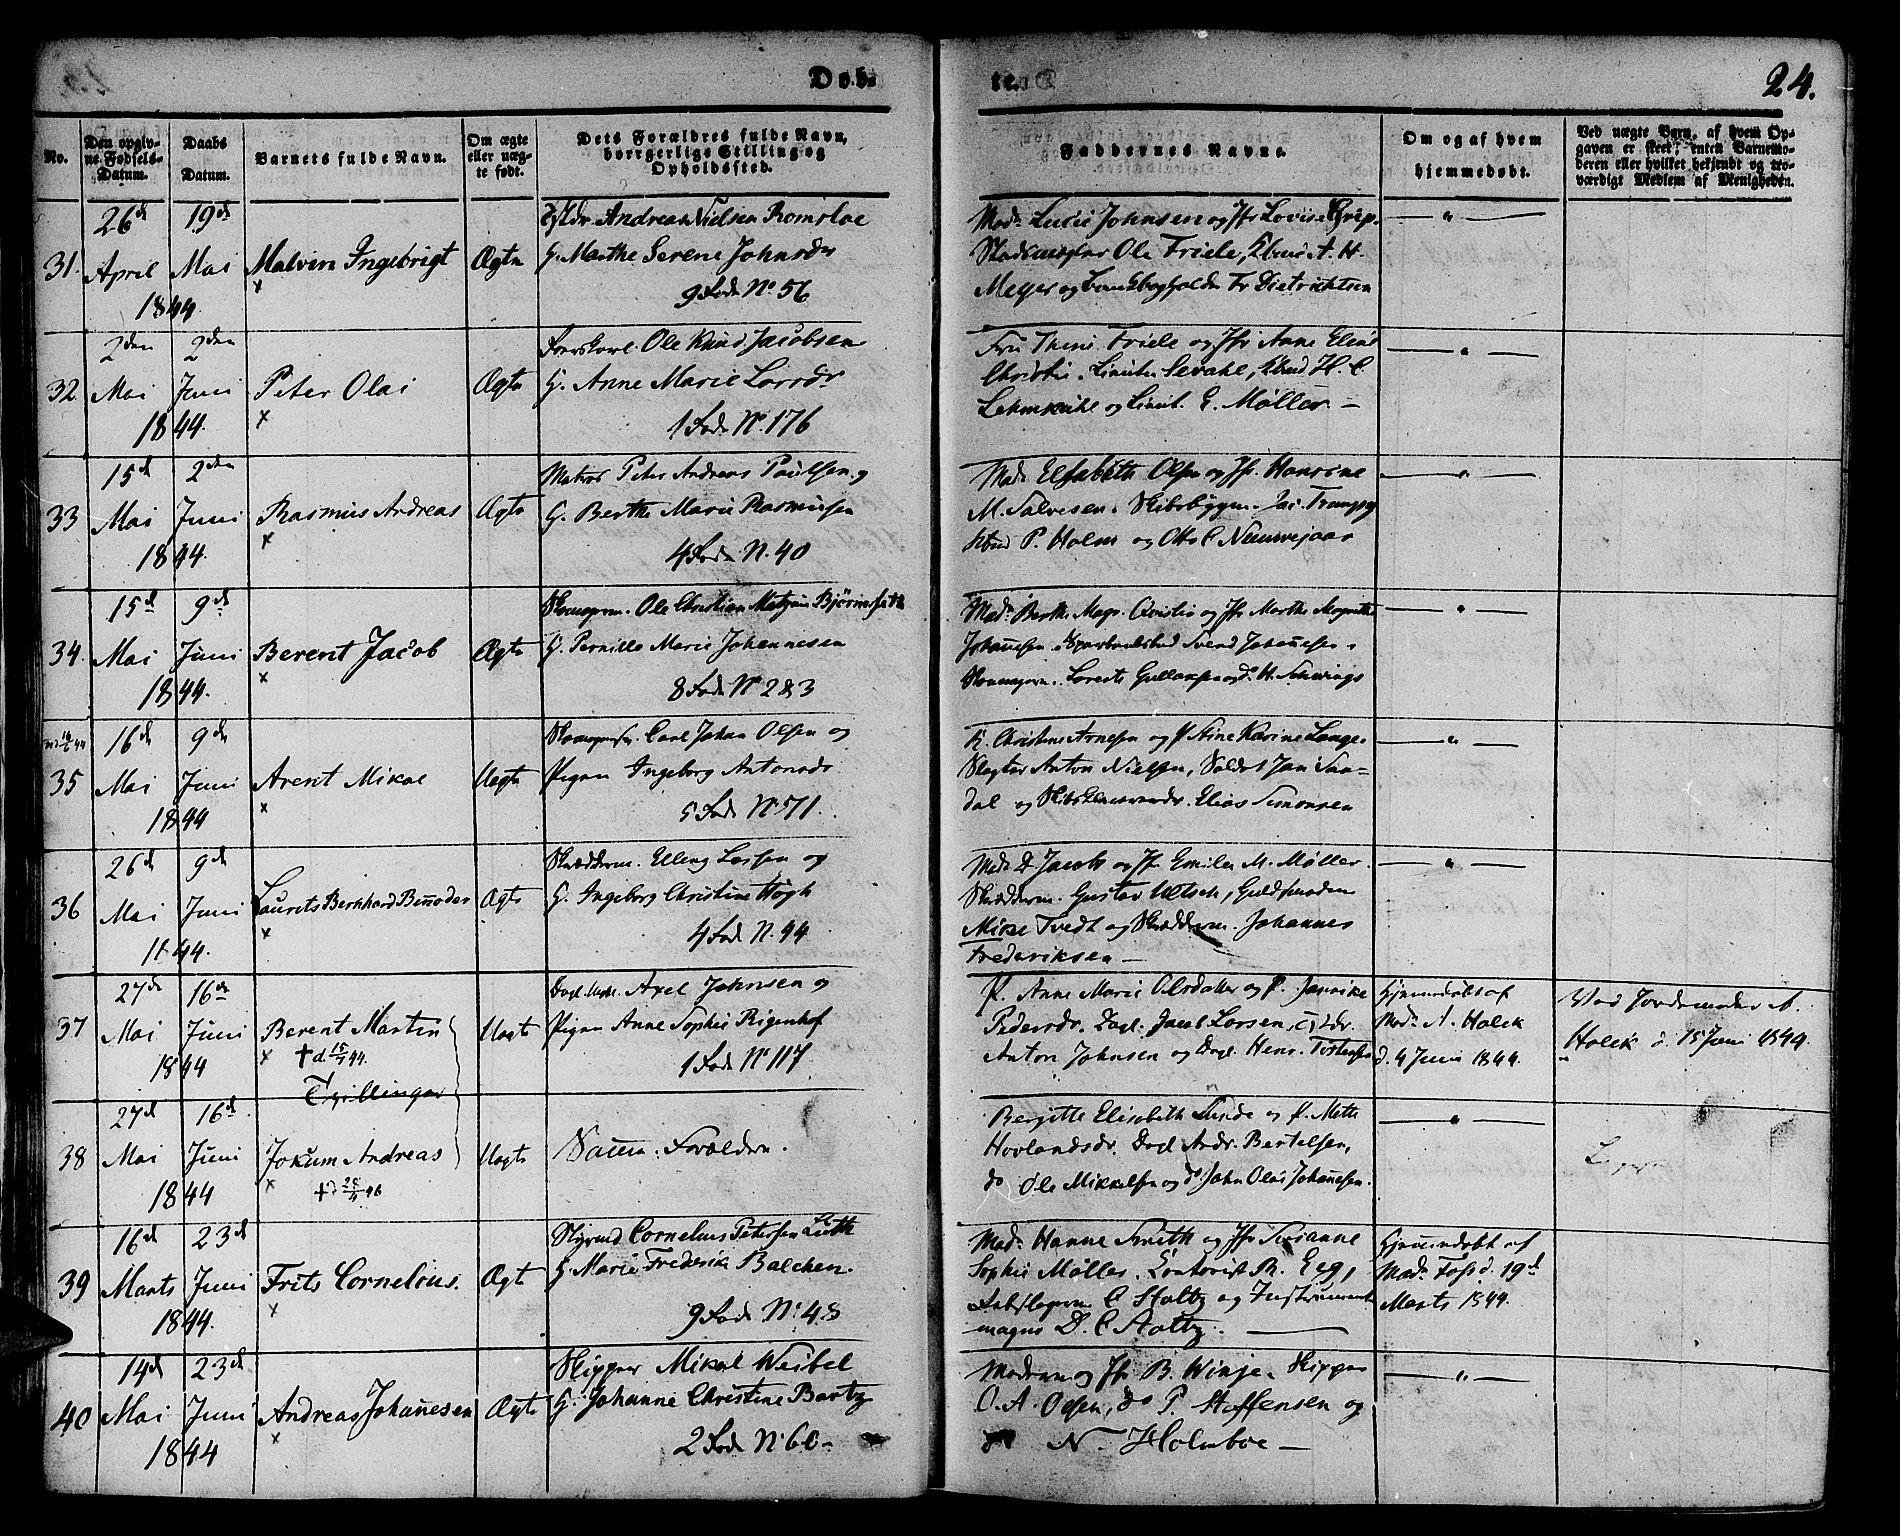 Døb-
te.
24.
No.
Den opgiv-
ne Fødsels-
Datum.
Daabs
Datum.
Barnets fulde Navn.
Om ægte
eller uæg-
te født.
Dets Forældres fulde Navn,
borgerlige Stilling og
Opholdssted.
Faddernes Navne.
Om og af hvem
hjemmedøbt.
Ved uægte Børn, af hvem Op-
gaven er skeet; enten Barnemo-
deren eller hvilket bekjendt og tro-
værdigt Medlem af Menigheden.
31. 26de April 1844 19de Mai Malvin Ingebrigt Ægte
Andreas Nielsen Romsloe
G. Marthe Serene Johnsdr
9 Rode No. 56
Mad. Lucie Johnsen og Jfr Lovise Grip.
Ole Friele, A. H.
Meyer og Fr Dietrichsen
32 2den Mai 1844. 2den Juni Peter Olai Ægte
Ole Knud Jacobsen
G. Anne Marie Larsdr
1 Rode No. 176
Fru Theni Friele og Jfr Anne Elen
Christie. Sevahl, H. C.
Lehmkuhl og Lieut. E. Møller. –
33 15de Mai 1844. 2den Juni Rasmus Andreas Ægte
Matros Peter Andreas Paulsen og
G. Berthe Marie Rasmusen
4 Rode N. 40
Mad. Elsebeth Olsen og Jfr. Hansine
M. Salvesen. Skibsbygm. Jac. Trumpy
P. Holm og Otto C Neuwejaar
34. 15de Mai 1844. 9de Juni Berent Jacob Ægte
Skomagerm. Ole Christian Bjørnseth
G. Pernille Marie Johannesen
8 Rode No 283
Mad. Berthe Magr. Christie og Jfr Marthe Magrethe
Johannesen. Svend Johannesen.
H. Schwings
35 16de Mai 1844 9de Juni Arent Mikal Uægte
Carl Johan Olsen og
Pigen Ingeborg Antonsdr
5 Rode No. 571.
K. Christine Arnesen og P. Stine Karine Lange.
Slagter Anton Nielsen, Jan Saa-
dal og Elias Simonsen
36 26de Mai 1844. 9de Juni Laurits Bernhard Ægte
Skrædderm. Elling Larsen og
G. Ingeborg Christine Høgh
4 Rode N. 44
Mad. D Jacob og Jfr Emilie M. Møller.
Skrædderm. Gustav
Tvedt og Skrædderm. Johannes
Frederiksen –
37 27de Mai 1844 16de Juni Berent Martin Uægte
† d. 15/7 44.
Tvillinger
Axel Johnsen og
Pigen Anne Sophie Rigenhof
1 Rode No. 117
P. Anne Marie Olsdatter og P. Jannike
Pedersdr. Dagl. Jacob Larsen,
Anton Johnsen og Dagl. Hens.
Hjemmedøbt af
Mad. A. Holck
d. 4 Juni 1844.
Ved Jordemoder A.
Holck d. 15 Juni 1844.
38 27de Mai 1844 16de Juni Jokum Andreas Uægte
Samme Forældre.
Bergitte Elisabeth og P. Mette
Hovlandsdr. Dagl Andr. Bertelsen,
do Ole Mikkelsen og do John Olai Johannesen.
39 16de Marts 1844. 23de Juni Frits Cornelius. Ægte
Cornelius Petersen Lüth
G. Marie Frederik Balchen.
9 Rode No. 48
Mad. Hanne Smith og Jfr Susanne
Sophie Møller. Contorist R. Eeg,
C Stoltz og Instrument-
mager D. C Stoltz.
Hjemmedøbt af
Mad. Foss d. 19de
Marts 1844.
40 14de Mai 1844 23de Juni Andreas Johannesen Ægte
Skipper Mikal Weibel
G. Johanne Christine Bartz
2 Rode No 60 –
Madam og Jfr B. Winje. Skipper
O. A. Olsen, do P. Steffensen og
do N. Holmboe –